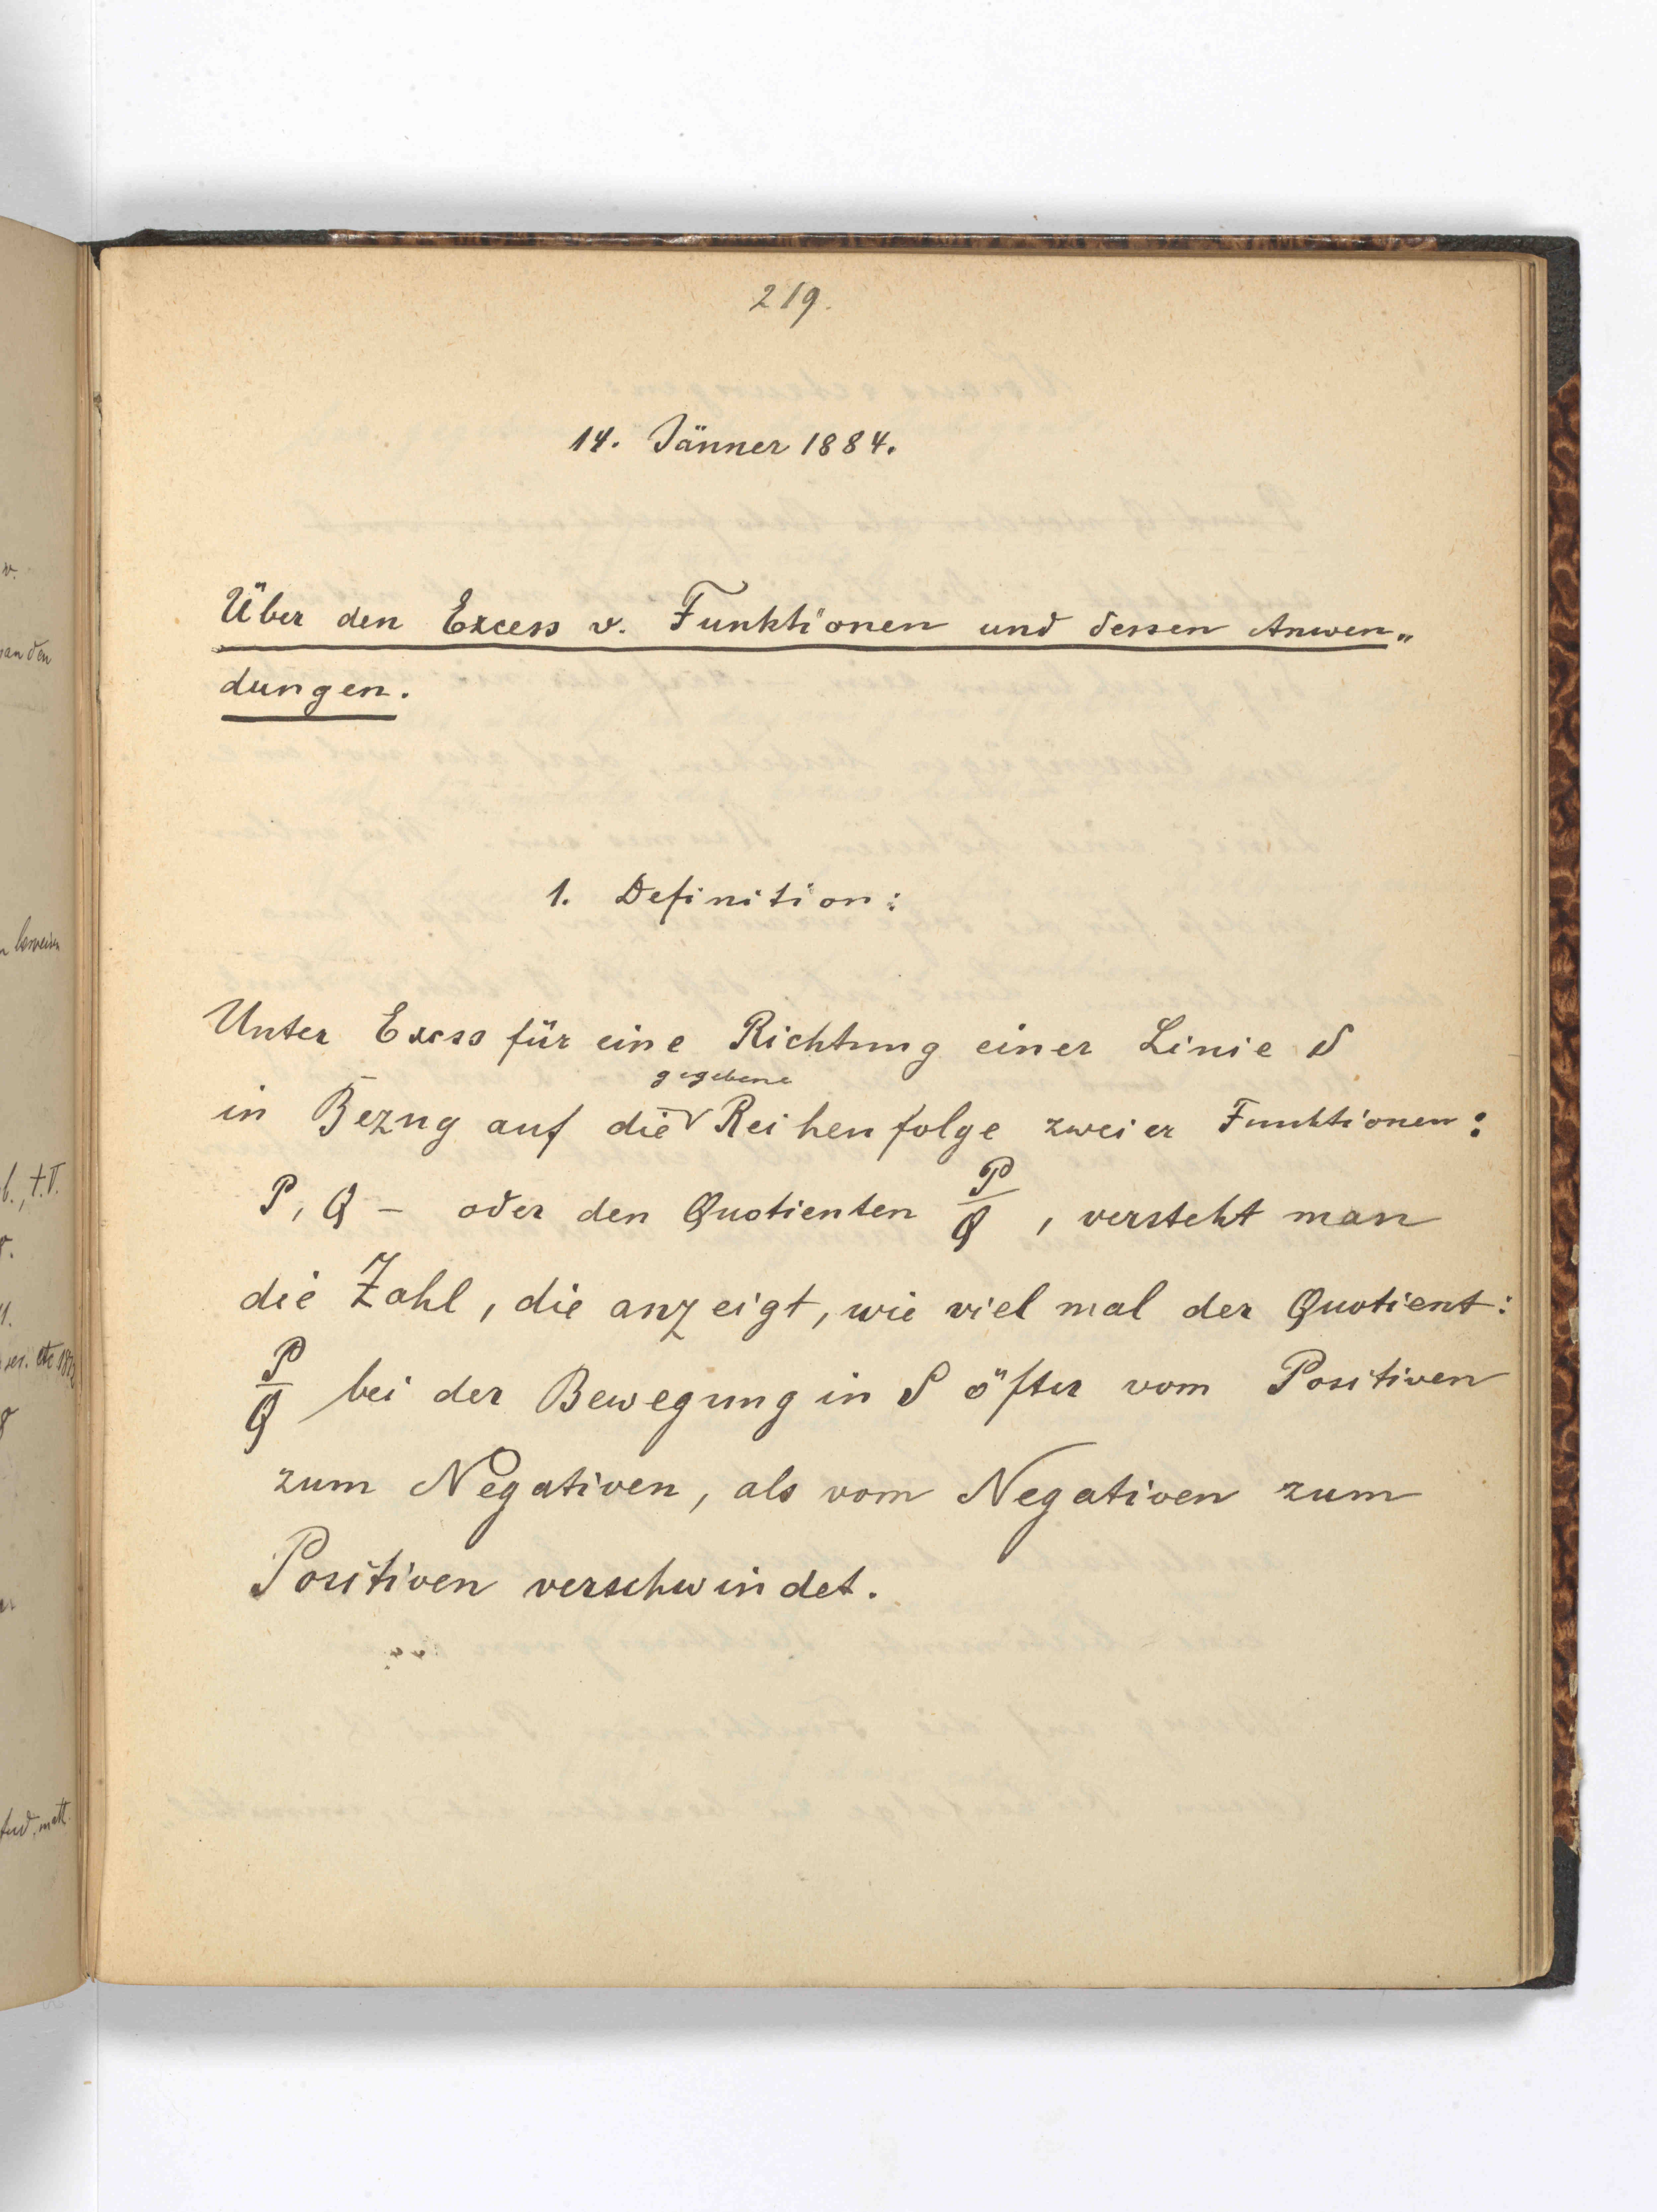 219.
14. Jänner 1884.
Über den Excess v. Funktionen und dessen Anwen„
dungen.
1. Definition:
Unter Excss für eine Richtung einer Linie S
gegebene
in Bezug auf die Reihenfolge zweier Funktionen:
P, Q – oder den Quotienten P/Q, versteht man
die Zahl, die anzeigt, wie viel mal der Quotient:
P/Q bei der Bewegung in S öfter vom Positiven
zum Negativen, als vom Negativen zum
Positiven verschwindet.